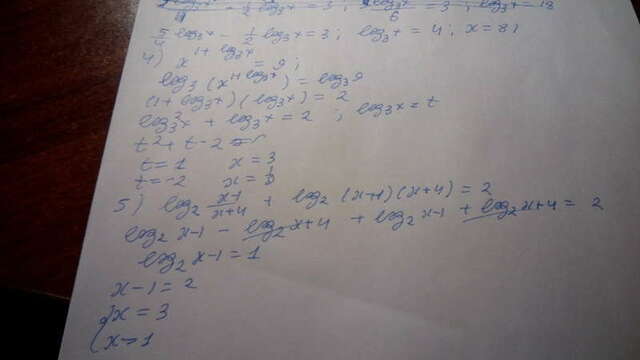 5/4 log₃x - 1/2 log₃x = 3; log₃x = 4; x = 81
4) x^(1+log₃x) = 9;
log₃(x^(1+log₃x)) = log₃9
(1+log₃x)(log₃x) = 2
log₃²x + log₃x = 2 ; log₃x = t
t² + t - 2 = 0
t = 1 x = 3
t = -2 x = 1/9
5) log₂ (x-1)/(x+4) + log₂ (x-1)(x+4) = 2
log₂ x-1 - log₂ x+4 + log₂ x-1 + log₂ x+4 = 2
log₂ x-1 = 1
x-1 = 2
{x = 3
x > 1